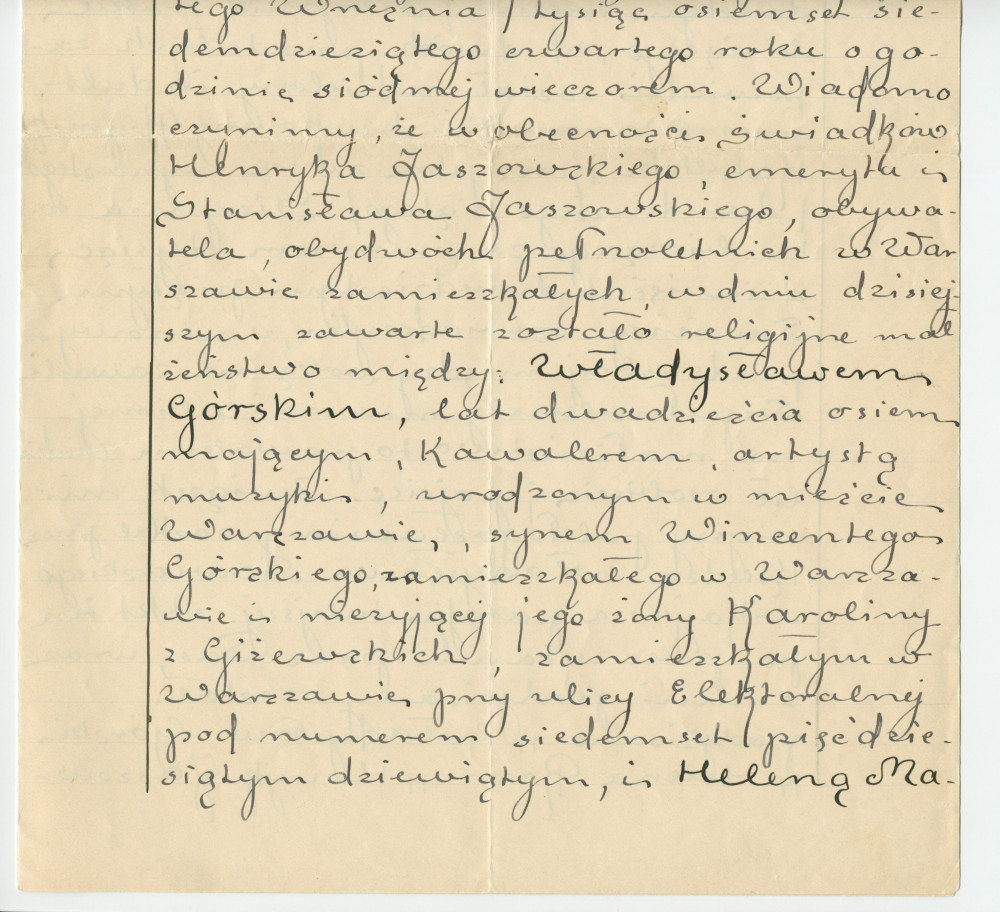 tego Września / tysiąc osiemset sie-
demdziesiątego czwartego roku o go-
dzinie siódmej wieczorem. Wiadomo
czynimy, że w obecności świadków
Henryka Jaszowskiego, emeryta i
Stanisława Jaszowskiego, obywa-
tela, obydwóch pełnoletnich w War
szawie zamieszkałych, w dniu dzisiej-
szym zawarte zostało religijne mał
żeństwo między: Władysławem
Górskim, lat dwadzieścia osiem
mającym, Kawalerem, artystą
muzyki, urodzonym w mieście
Warszawie, synem Wincentego
Górskiego, zamieszkałego w Warsza-
wie i nieżyjącej jego żony Karoliny
z Giżewskich, zamieszkałym w
Warszawie przy ulicy Elektoralnej
pod numerem siedemset pięćdzie-
siątym dziewiątym, i Heleną Ma-